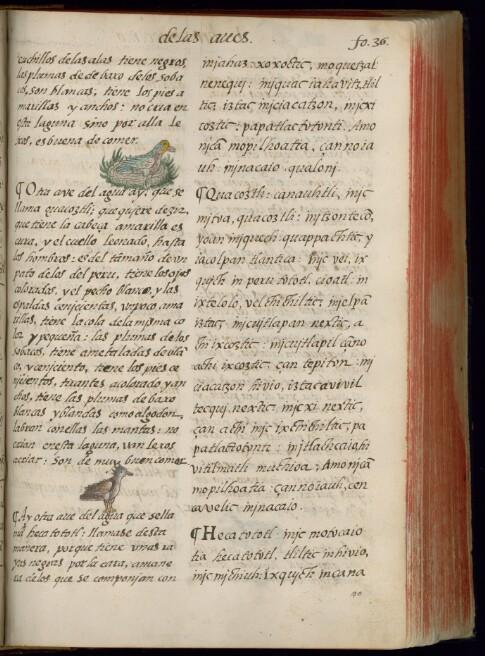 de las aues.
fo. 36.
cuchillos de las alas tiene negros,
las plumas de de baxo de los soba
cos, son blancas, tiene los pies a
marillas y anchos: no cria en
esta laguna sino por alla le
xos, es buena de comer.
¶ Otra ave del agua ay, que se
llama quacoztli; que quiere dezir,
que tiene la cabeça amarilla es
cura, y el cuello leonado, hasta
los hombros: es del tamaño de un
pato de los del peru, tiene los ojos
colorados, y el pecho blanco, y las
espaldas cenicientas, un poco ama
rillas, tiene la cola de la misma co
lor y pequeña: las plumas de los
sobacos, tiene ametaladas de blā
co, y ceniciento, tiene los pies ce
nicientos, tirantes a colorado, y an
chos, tiene las plumas de baxo
blancas y blandas como algodon,
labran con ellas las mantas: no
crian en esta laguna, van lexos
a criar: Son de muy buen comer
¶ Ay otra aue del agua que se lla
ma hecatototl: llamase desta
manera, porque tiene unas ra
yas negras por la cara, a mane
ra de los que se componian con
iniahaz: xoxoctic, moquetzal
nenequi: injquac iatlavitz, tlil
tic, iztac injciacatzon, injcxi
coztic: papatlactotonti. Amo
njcā mopilhoatia, çan noia
uh: injnacaio qualonj.
¶ Quacoztli: canauhtli, injc
mjtoa, quacoztli: injtzonteco,
yoan injquech: quappachtic, y
iacolpan tlantica: injc vei, ix
quich in peru totol, cioatl: in
ixtelolo, vel chichiltic; injelpā
iztac, injcujtlapan nextic, a
chi ixcoztic: injcujtlapil çano
achi ixcoztic çan tepiton: in
ciacatzon hivio, iztaca vivil
tecqui, nextic, injcxi nextic,
can achi injc ixchichiltic, pa
patlactotonti: injtlalhcaiohi
vitilmatli muchioa; Amo njcā
mopilhoatia: çan noiauh, cen
ca velic injnacaio.
¶ Hecatototl: injc motocaio
tia hecatototl, tliltic inhivio,
injc mjchiuh: Ixquich in cana